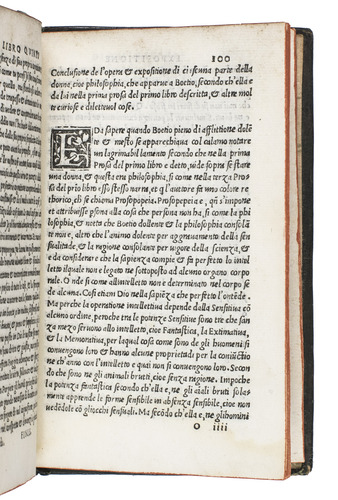 LIBRO QUINTO
100
Conclusione de l'opera & expositione di ciascuna parte della
donna, cioe philosophia, che apparue a Boetio, secondo ch'ella e
da lui nella prima prosa del primo libro descritta, & altre mol
te curiose e diletteuol cose.
EDa sapere quando Boetio pieno di afflittione dolẽ
te & mesto se apparecchiaua col calamo notare
un lagrimabil lamento secondo che nella prima
Prosa del primo libro e detto, uide sopra se stare
una donna, & questa era philosophia, si come nella terza Prosa
del prio libro esso stesso narra, et q̃ l'autore fa uno colore re
thorico, ch'e si chiama Prosopopeia. Prosopopeia e, qñ s'impone
et attribuisse ꝑsona alla cosa che persona non ha, si come la phi
losophia, & nota che Boetio dollente & la philosophia consolã
te non e, altro che l'animo dolente per aggrauamento della sen
sualitade, & la ragione consolante per uigore della scienza, &
e da considerare che la sapienza compie & fa perfetto lo intel
letto ilquale non e legato ne sottoposto ad alcuno organo corpo
rale. O nde come allo intelletto non e determinato nel corpo se
de alcuna. Cosi etiam Dio nella sapiẽza che perfetta l'onẽde.
Ma perche la operatione intellettiua depende dalla Sensitiua cõ
alcuno ordine, peroche tra le potenze Sensitiue sono tre che san
za mezo seruono allo intelletto, cioe Fantastica, la Extimatiua,
& la Memoratiua, per laqual cosa come sono de gli huomeni si
conuengono loro & hanno alcune proprietadi per la coniũctio
ne ch'anno con l'intelletto e quai non si conuengono loro. Secon
do che sono ne gli animali brutti, cioe senza ragione. Impoche
la potenza fantastica secondo ch'ella e, ne gli aĩali bruti sola
mente apprende le forme sensibile in absenza sensibile, cioe non
uedẽdole cõ gliocchi sensuali. Ma secõdo ch'ella e, ne glihomini
O iiii